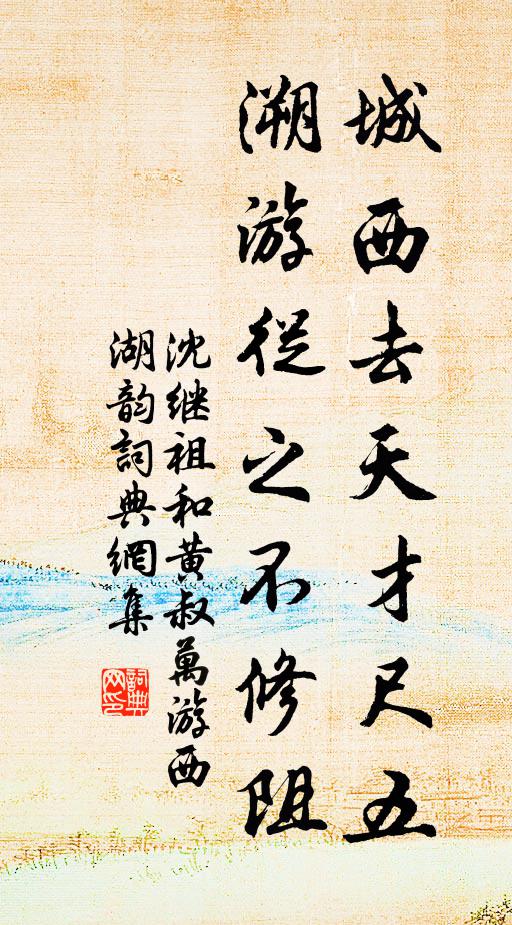 城西去天才尺五
溯游從之不修阻
沈继祖和黄叔萬游西
湖韵詞典網集
詞典
网印